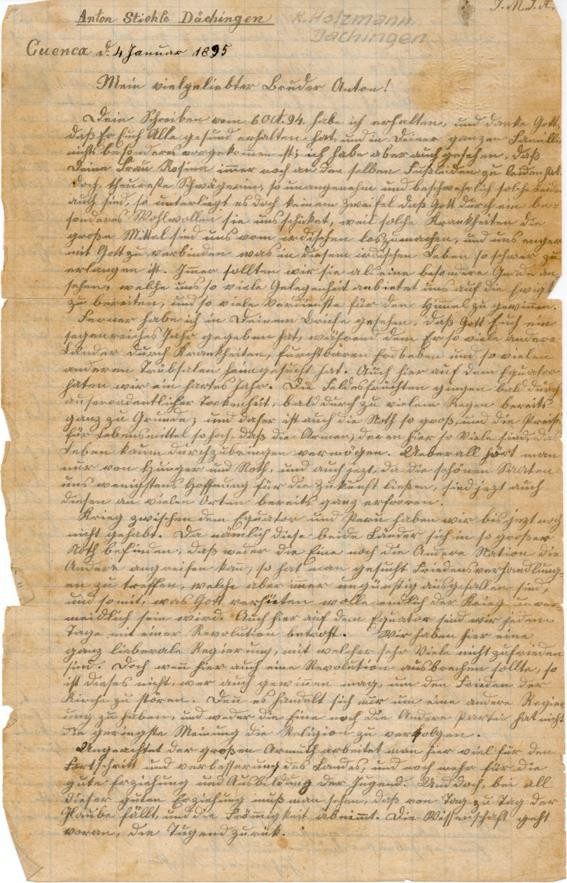 J. M. J. A.
Anton Stiehle Dächingen
K. Holzmann
Dächingen
Cuenca d. 4 Januar 1895
Mein vielgeliebter Bruder Anton!
Dein Schreiben vom 6 Oct. 94. habe ich erhalten, und danke Gott,
daß Er Euch Alle gesund erhalten hat, und in Deiner ganzen Familie
nichts besonderes vorgekommen ist; ich habe aber auch gesehen, daß
Deine Frau Rosina immer noch an den selben Fußleiden zu leiden hat.
Doch, theureste Schwägerin, so unangenehm und beschwerlich solche
auch sind, so unterliegt es doch keinem Zweifel daß Gott durch ein be-
sonderes Wohlwollen sie uns schicket, weil solche Krankheiten die
große Mittel sind uns vom irdischen loszumachen, und uns enger
mit Gott zu verbinden was in diesem irdischen Leben so schwer zu
erlangen ist. Imer sollten wir sie als eine besondere Gnade an-
sehen, welche uns so viele Gelegenheit anbietet uns auf die Ewig
zu bereiten, und so viele Verdienste für den Himel zu gewinnen.
Ferner habe ich in Deinem Briefe gesehen, daß Gott Euch ein
segenreiches Jahr gegeben hat, während dem Er so viele andere
Länder durch Krankheiten, furchtbaren Erdbeben und so vielen
anderen Trübsalen heimgesucht hat. Auch hier auf dem Equator
haten wir ein hartes Jahr. Die Feldesfrüchten gingen bald durch
auserordentlicher Tockenheit, bald durch zu vielem Regen bereits
ganz zu Grunde; und daher ist auch die Noth so groß, und die Preise
für Lebensmittel so hoch, daß die Armen, deren hier so Viele sind, das
Leben kaum durchzubringen vermögen. Ueberall hört man
nur von Hunger und Noth, und auch jezt, da die schönen Saaten
uns wenigstens Hoffnung für die Zukunft ließen, sind jezt auch
diesen an vielen Orten bereits ganz erfroren.
Krieg zwischen dem Equator und Peru haben wir bis jezt noch
nicht gehabt. Da nämlich diese beide Länder sich in so großer
Noth befinden, daß weder die Eine noch die Andere Nation die
Andere angreifen kan, so hat man gesucht Friedensverhandlung-
en zu treffen, welche aber immer ungünstig ausgefallen sind,
und somit, was Gott verhüten wolle endlich der Krieg unver-
meidlich sein wird. Auch hier auf dem Equator sind wir jeden
Tage mit einer Revolution betroht. Wir haben hier eine
ganz liaberale Regierung, mit welcher sehr Viele nicht zufrieden
sind. Doch wenn hier auch eine Revolution ausbrechen sollte, so
ist dieses nicht, wer auch gewinen mag, um den Frieden der
Kirche zu stören. Den es handelt sich nur um eine andere Regier-
ung zu haben, und weder die Eine noch die Andere Partei hat nicht
die geringste Meinung die Religion zu verfolgen.
Ungeachtet der großen Armuth arbeitet man hier viel für den
Fortschritt und verbesserung des Landes, und noch mehr für die
gute Erziehung und Ausbildung der Jugend. Und doch, bei all
dieser guten Erziehung muß man sehen, daß von Tag zu Tag der
Glaube fällt, und die Frömigkeit abnimmt. Die Wissenschaft geht
voran, die Tugend zurük.